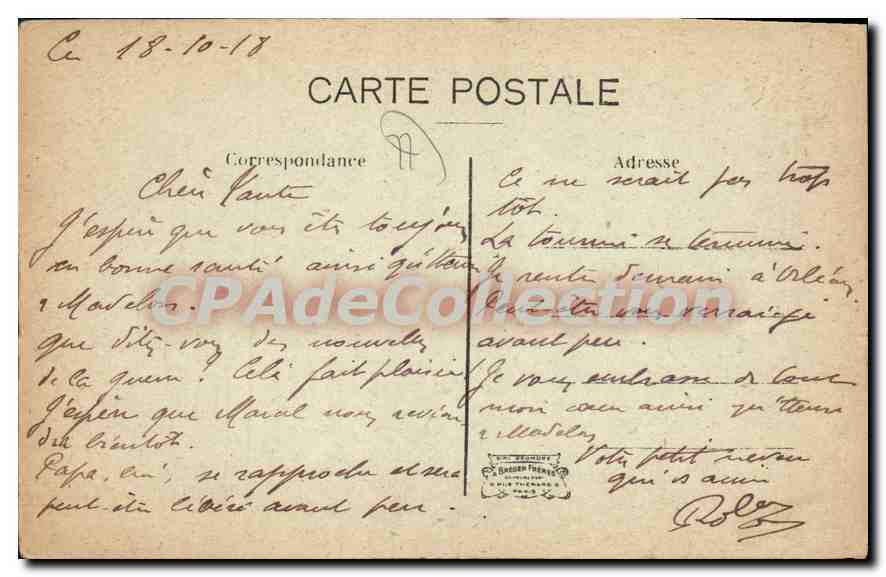 Ce 18-10-18
CARTE POSTALE
Correspondance
Chère Tante
J'espère que vous êtes toujours
en bonne santé ainsi qu'
& Madelon.
que dites-vous des nouvelles
de la guerre? Cela fait plaisir!
J'espère que nous revien-
dra bientôt.
Papa, se rapproche et sera
peut-être libéré avant peu.
Adresse
Ce ne serait pas trop
tôt.
La tournée se termine.
Je rentre demain à Orléans
Peut-être vous verrai-je
avant peu.
Je vous embrasse de tout
mon cœur ainsi qu'
& Madelon
Votre petit neveu
qui vs aime
CPAdeCollection
BREGER FRÈRES
9 RUE THÉNARD 9
PARIS